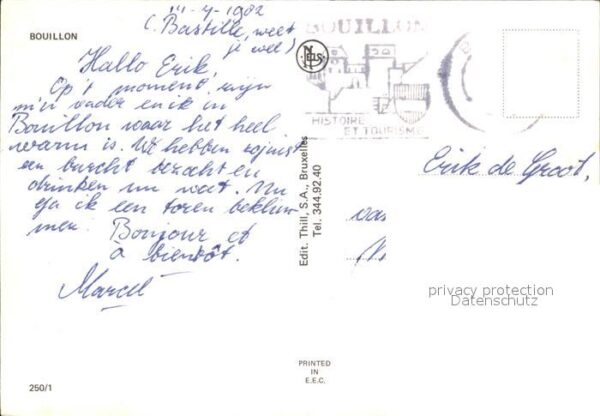 14-7-1982
(Bastille, weet
je wel)
BOUILLON
Hallo Erik,
Op 't moment zijn
m'n vader en ik in
Bouillon waar het heel
warm is. We hebben zojuist
een burcht bezocht en
drinken nu wat. Nu
ga ik een toren beklim-
men. Bonjour et
à bientôt.
Marcel
250/1
NELS
Edit. Thill, S.A., Bruxelles
Tel. 344.92.40
PRINTED
IN
E.E.C.
BOUILLON
HISTOIRE
ET TOURISME
Erik de Groot,
privacy protection
Datenschutz